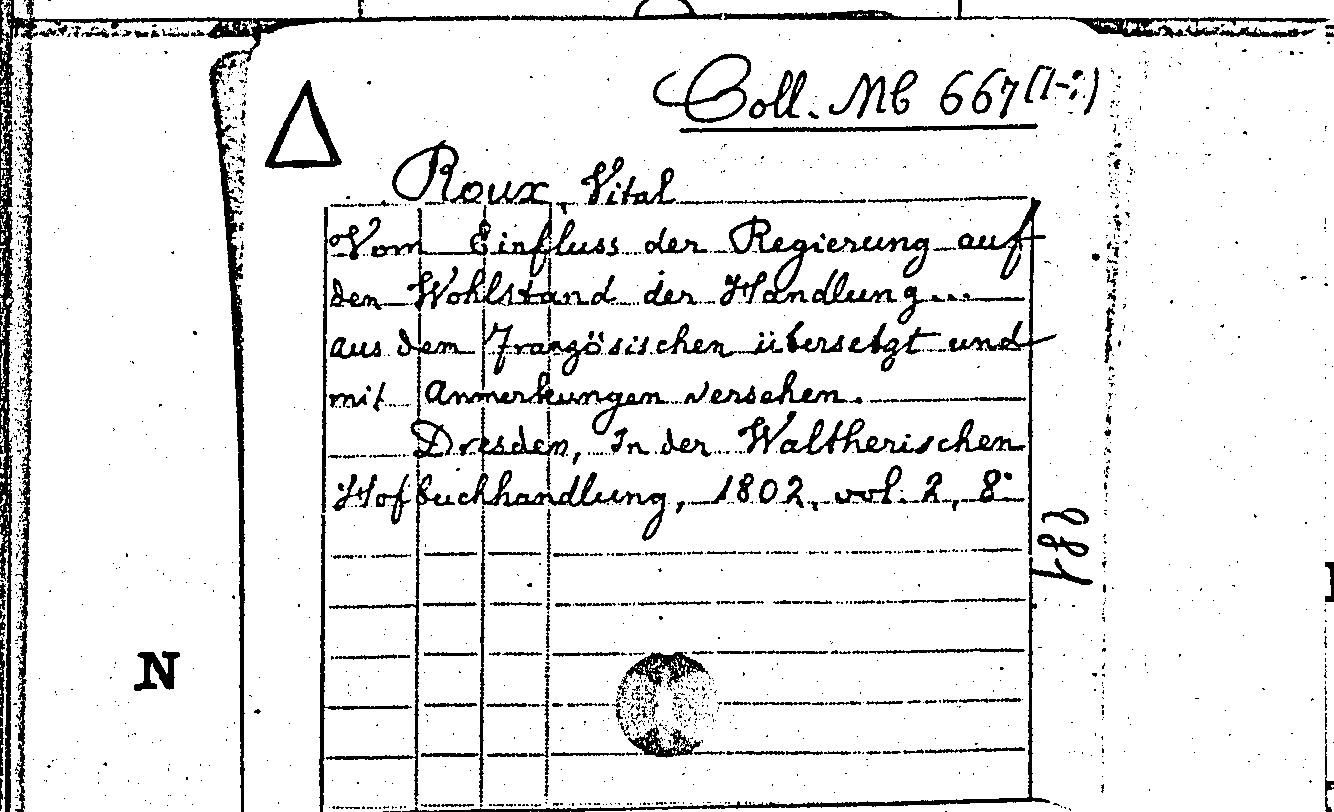 Coll. Mb 667
Roux, Vital
Vom Einfluss der Regierung auf
den Wohlstand der Handlung...
aus dem Französischen übersetzt und
mit Anmerkungen versehen.
Dresden, In der Waltherischen
Hofbuchhandlung, 1802, vol. 2, 8°
N